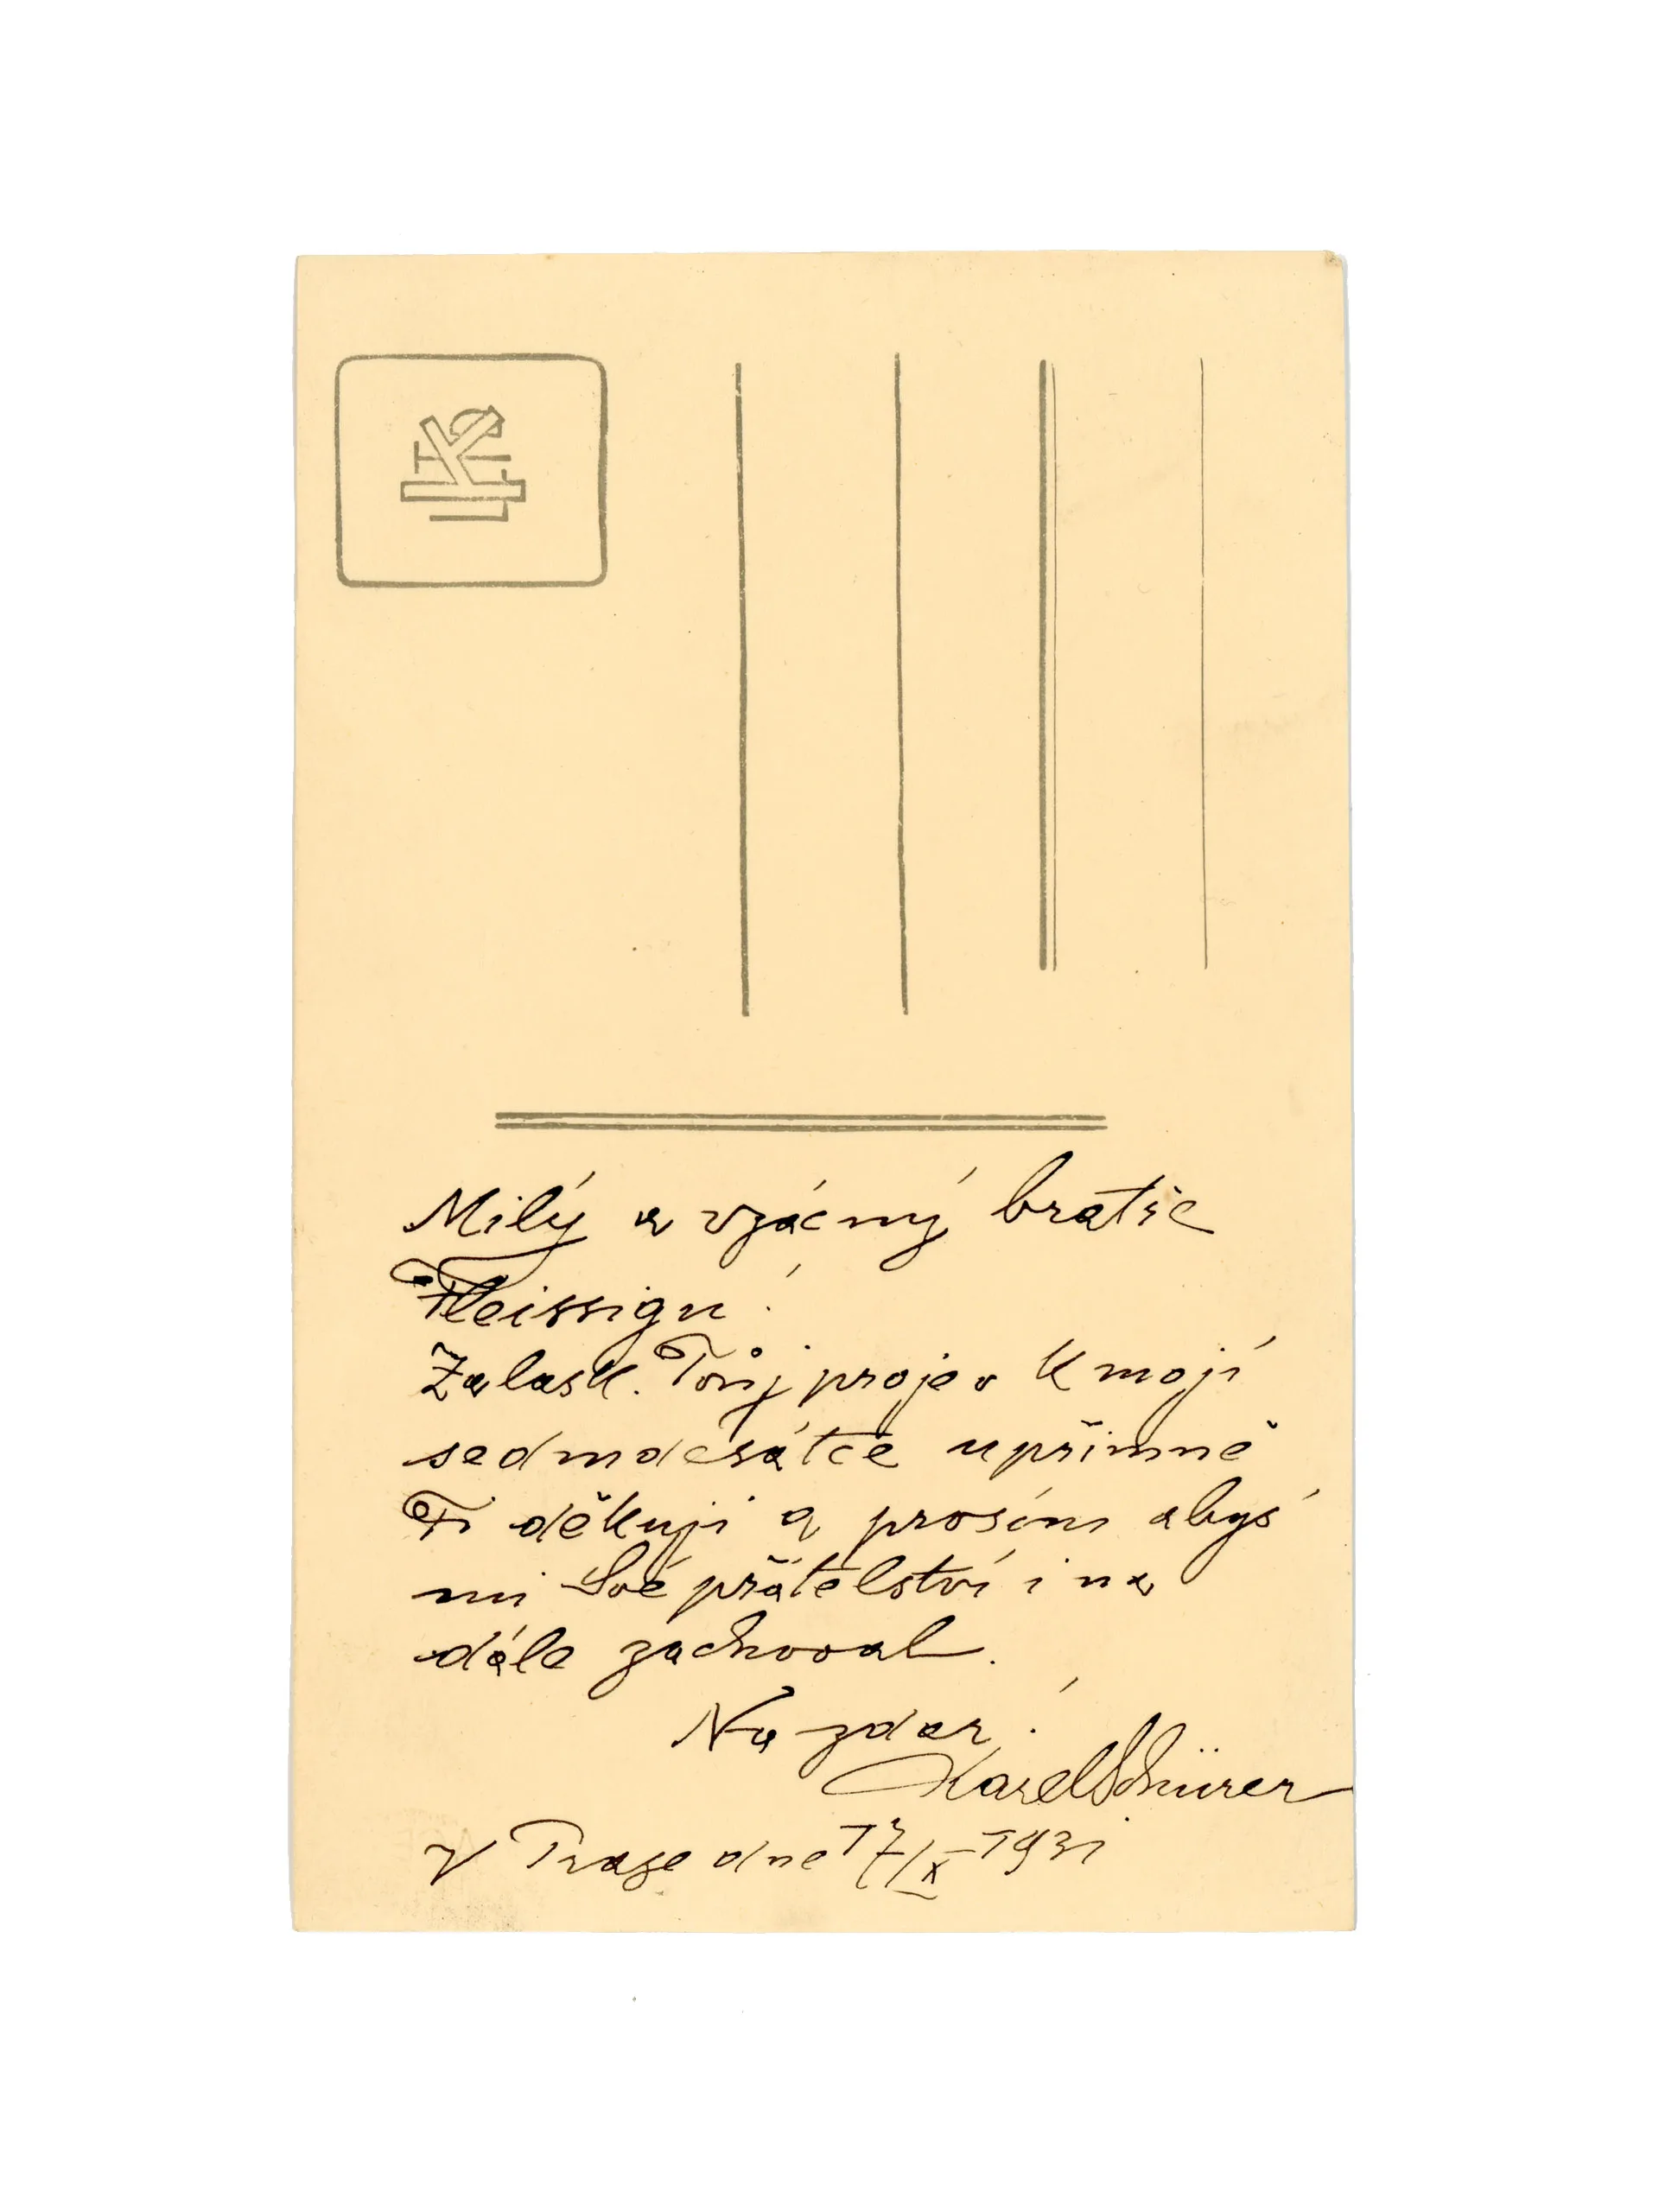 Milý a vzácný bratře
Fleissigu!
Za lask. Tvůj projev k mojí
sedmdesátce upřimně
Ti děkuji a prosím abyś
mi Své přátelství i na
dále zachoval.
Na zdar!
Karel Schürer
V Praze dne 17/X 1931